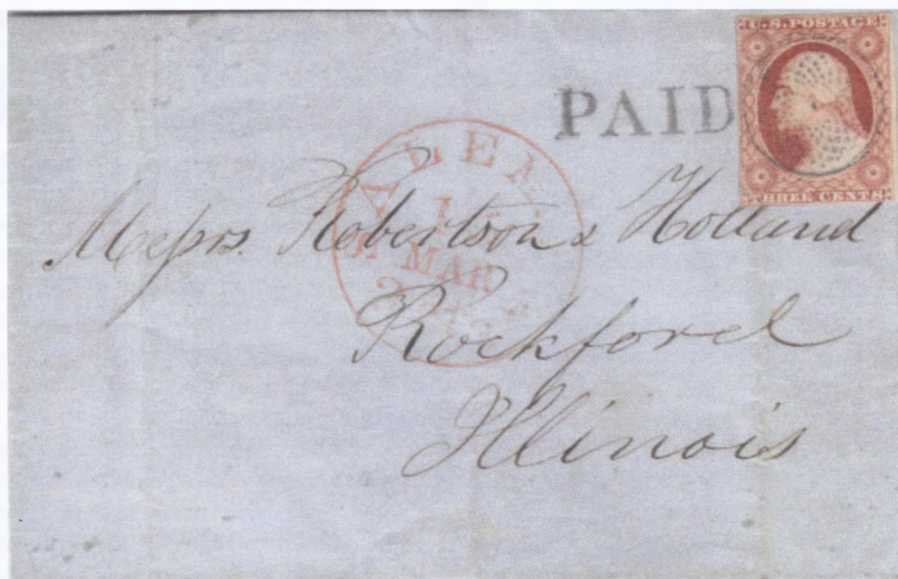 U.S. POSTAGE
PAID
THREE CENTS
SALEM
MAR
Messrs. Robertson & Holland
Rockford
Illinois